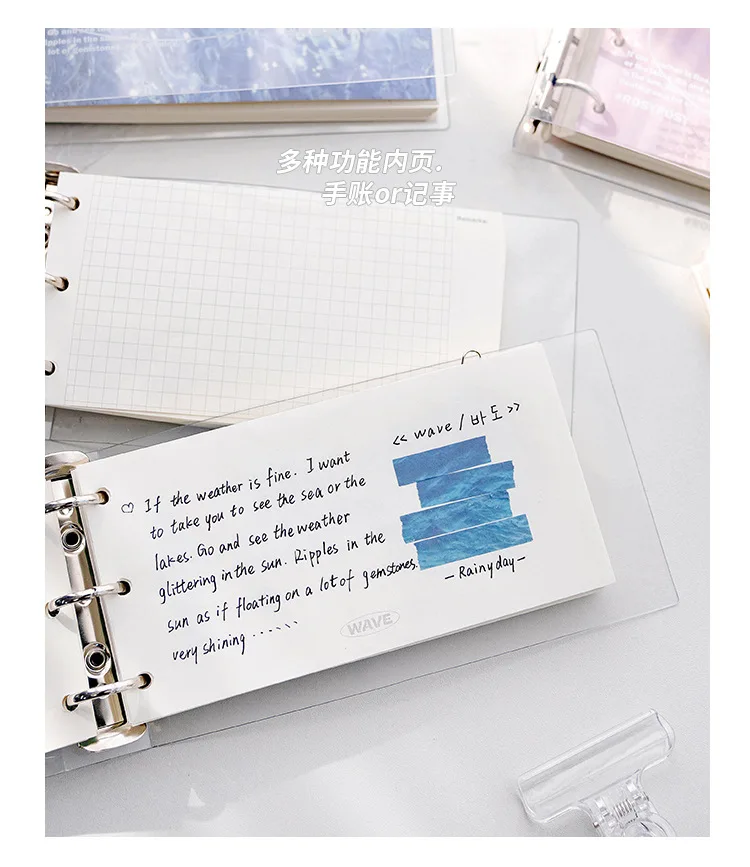 多种功能内页.
手账or记事
<< wave / 바도 >>
♡ If the weather is fine. I want
to take you to see the sea or the
lakes. Go and see the weather
glittering in the sun. Ripples in the
sun as if floating on a lot of gemstones.
very shining ······
— Rainy day —
WAVE